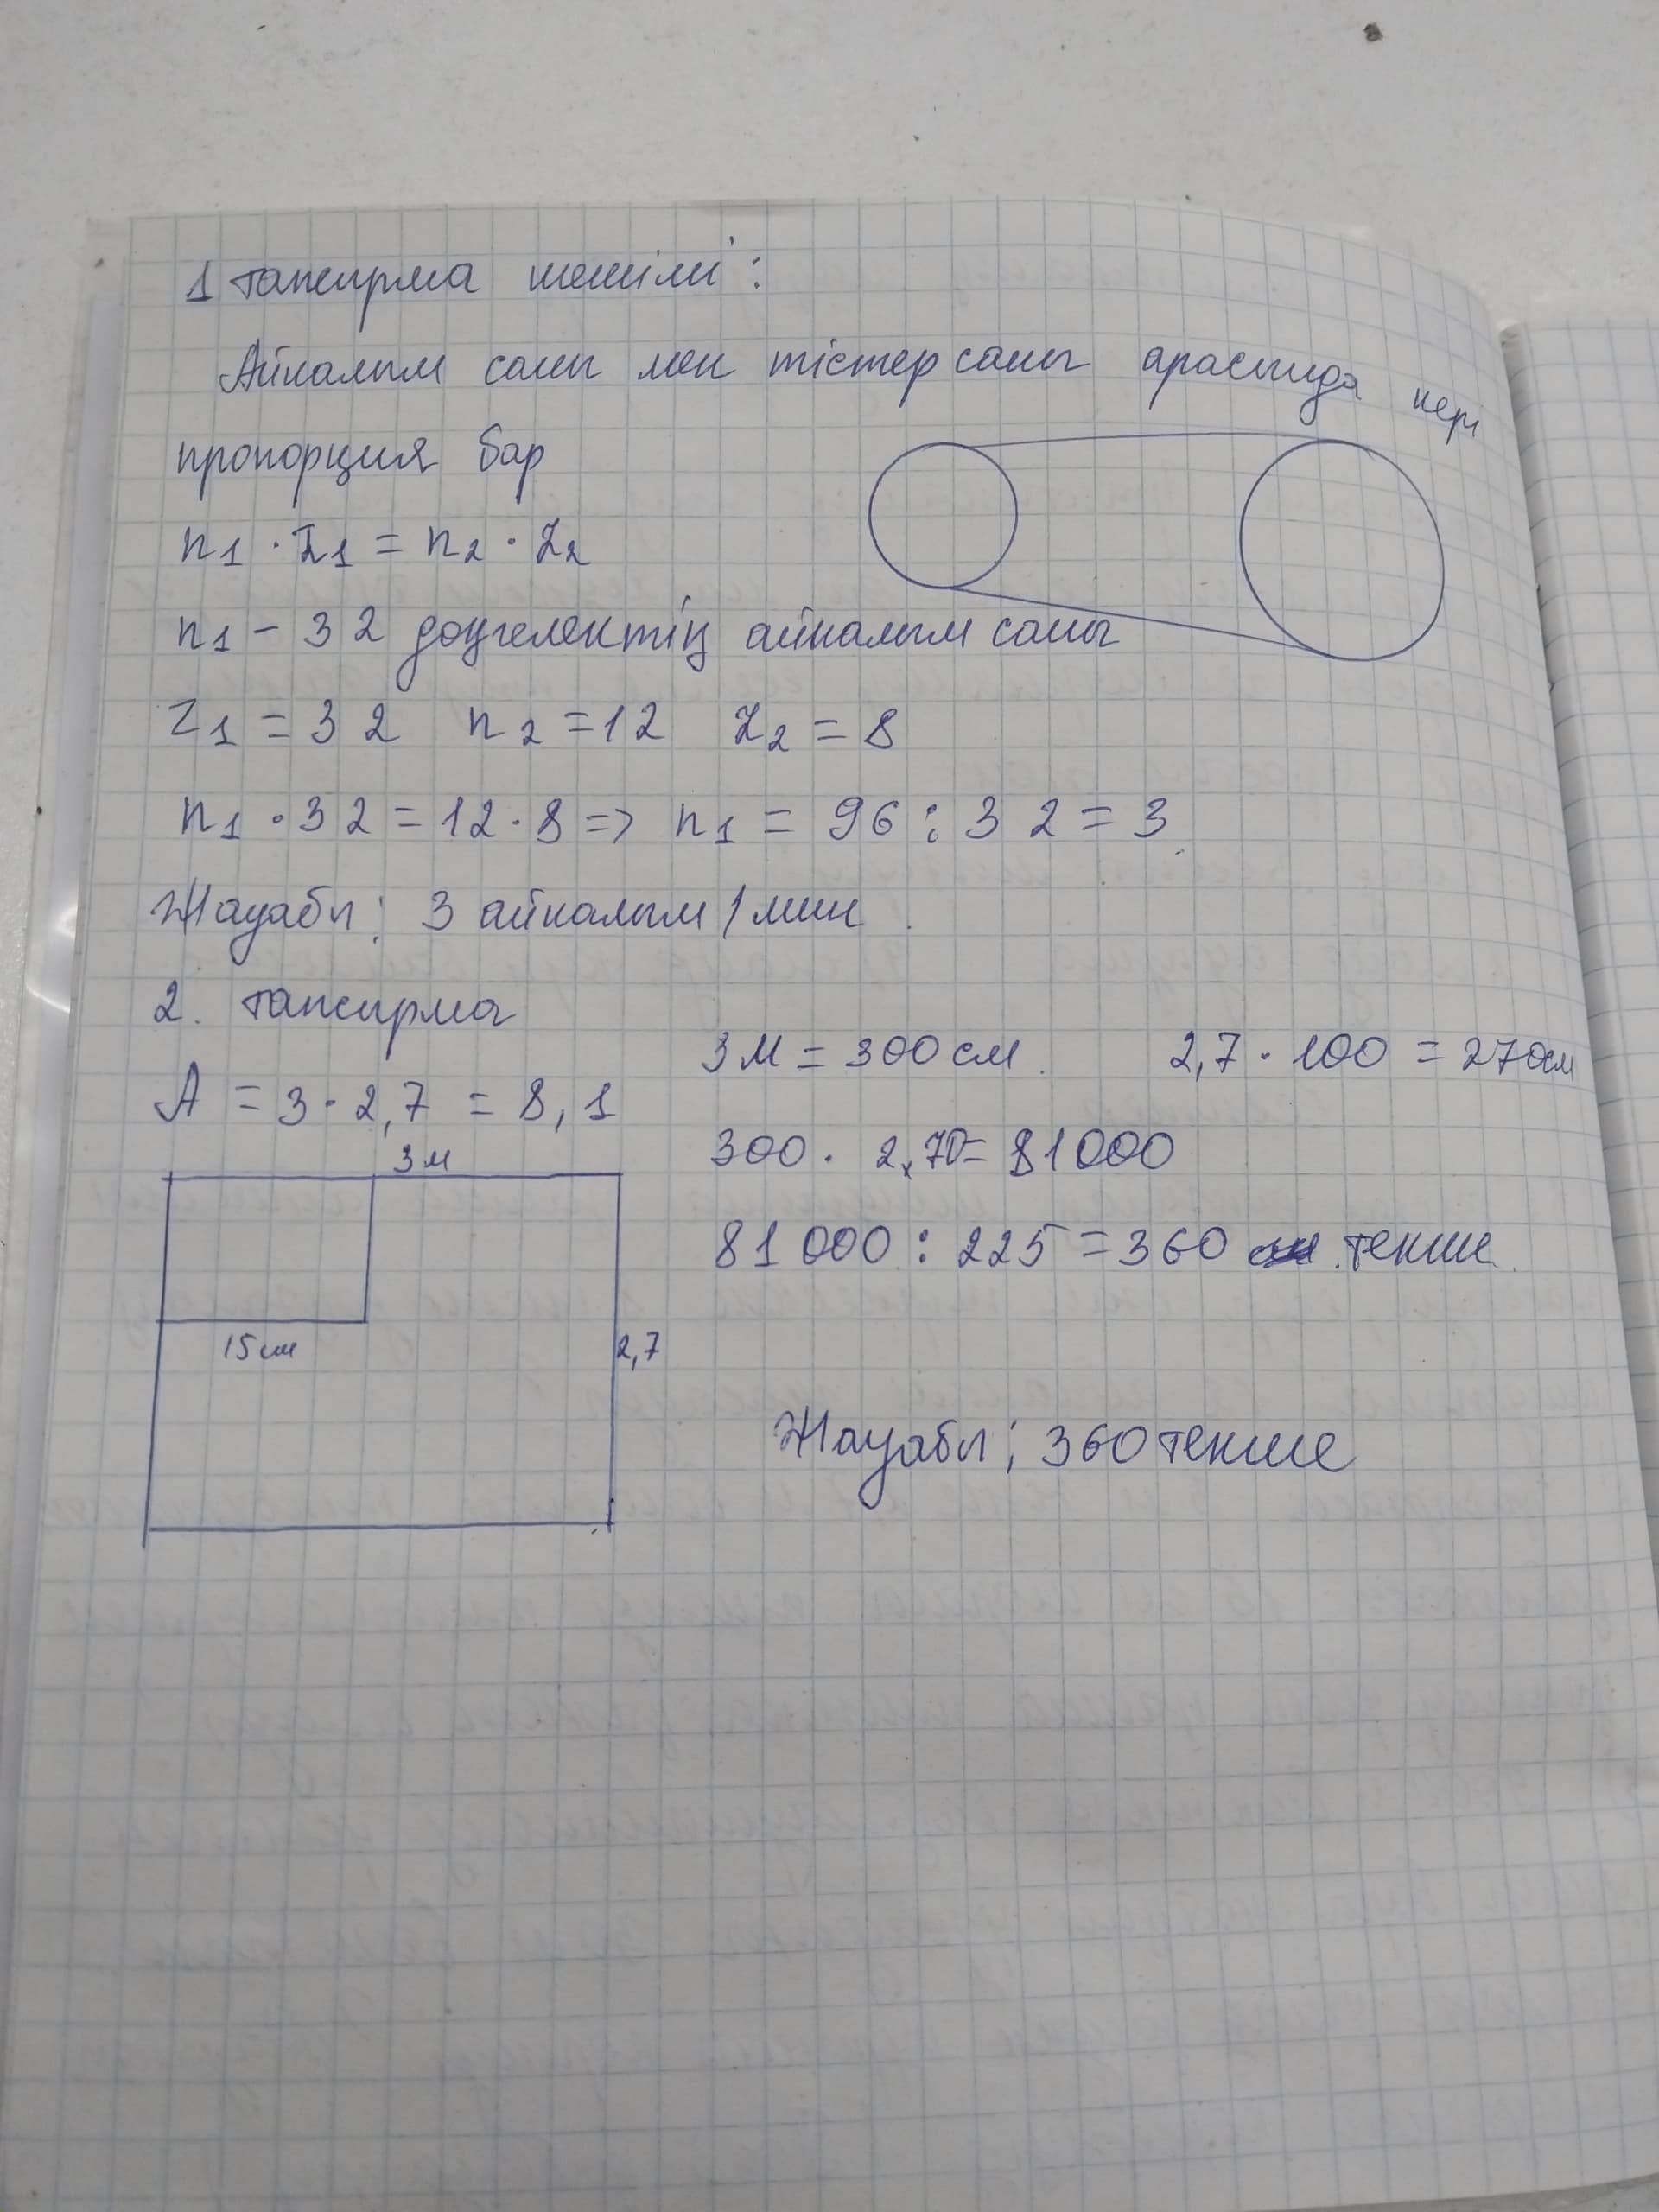 1 тапсырма шешімі:
Айналым саны мен тістер саны арасында кері
пропорция бар
n1 · z1 = n2 · z2
n1 – 32 доңгелектің айналым саны
z1 = 32 n2 = 12 z2 = 8
n1 · 32 = 12 · 8 => n1 = 96 : 32 = 3
Жауабы: 3 айналым / мин
2. тапсырма
A = 3 · 2,7 = 8,1
3м
15см
2,7
3м = 300 см 2,7 · 100 = 270см
300 · 2,70 = 81000
81 000 : 225 = 360 текше
Жауабы: 360 текше